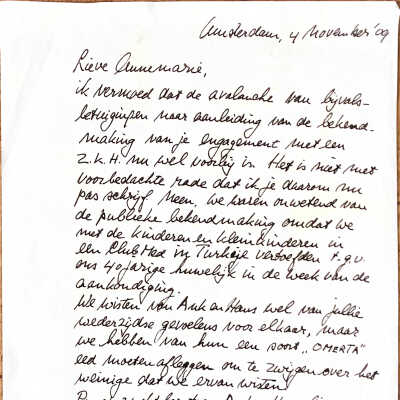 Amsterdam, 4 november '09
Lieve Annemarie,
ik vermoed dat de avalanche van bijvals-
betuigingen naar aanleiding van de bekend-
making van je engagement met een
Z.K.H. nu wel voorbij is. Het is niet met
voorbedachte rade dat ik je daarom nu
pas schrijf. Neen, we waren onwetend van
de publieke bekendmaking omdat we
met de kinderen en kleinkinderen in
een Club Med in Turkije vertoefden t.g.v.
ons 40 jarige huwelijk in de week van de
aankondiging.
We wisten van Ank en Hans wel van jullie
wederzijdse gevoelens voor elkaar, maar
we hebben van hun een soort „OMERTA"
eed moeten afleggen om te zwijgen over het
weinige dat we ervan wisten.